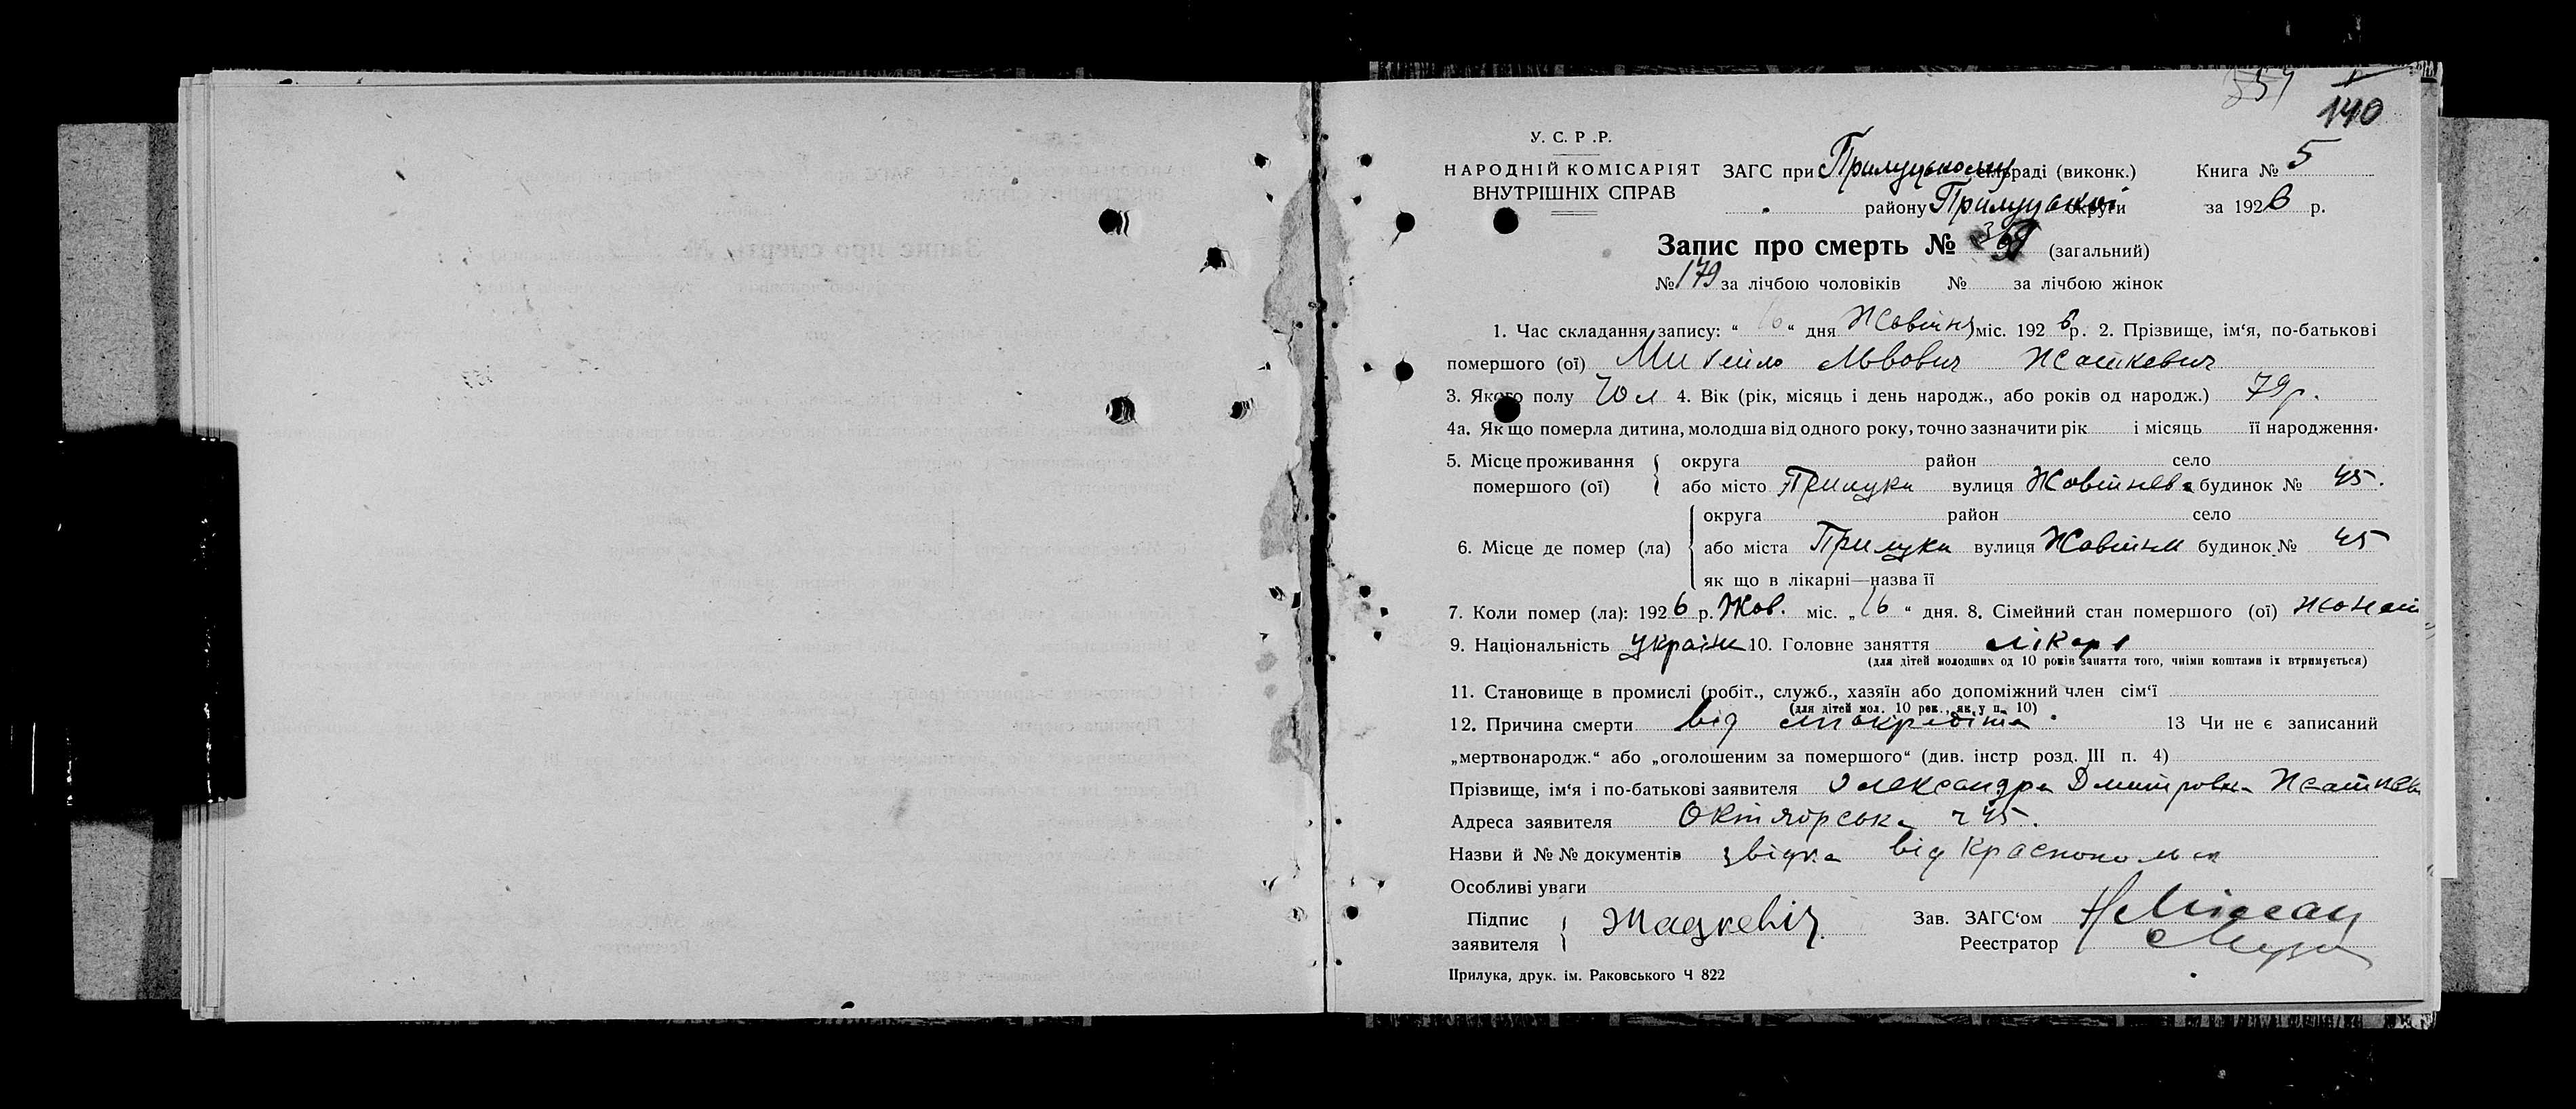 140
У. С. Р .Р.
НАРОДНІЙ КОМІСАРІЯТ ЗАГС при Прилуцькому раді (виконк.) Книга № 5
ВНУТРІШНІХ СПРАВ району Прилуцької округи за 1926 р.
Запис про смерть № (загальний)
№ 179 за лічбою чоловіків № за лічбою жінок
1. Час складання запису: “ 16 “ дня Жовтня міс. 1926 р. 2. Прізвище, ім‘я, по-батькові
помершого (ої) Михейло Львович Жаткевич
3. Якого полу Чол 4. Вік (рік, місяць і день народж., або років од народж.) 79 р.
4а. Як що померла дитина, молодша від одного року, точно зазначити рік і місяць її народження.
5. Місце проживання округа район село
помершого (ої) або місто Прилуки вулиця Жовтнева будинок № 45.
округа район село
6. Місце де помер (ла) або міста Прилуки вулиця Жовтнева будинок № 45
як що в лікарні—назва її
7. Коли помер (ла): 1926 р. Жов. міс. „ 16 “ дня. 8. Сімейний стан помершого (ої) жонат
9. Національність україн 10. Головне заняття лікарь
(для дітей молодших од 10 років заняття того, чиїми коштами їх втримується)
11. Становище в промислі (робіт., служб., хазяїн або допоміжний член сім‘ї
(для дітей мол. 10 рок., як у п. 10)
12. Причина смерти від 13 Чи не є записаний
„мертвонародж.“ або „оголошеним за помершого“ (див. інстр розд. III п. 4)
Прізвище, ім‘я і по-батькові заявителя Олександра Дмитровна Жаткев
Адреса заявителя Октяборська ч 45.
Назви й №№ документів звідка від
Особливі уваги
Підпис Зав. ЗАГС‘ом
заявителя Жаткевич Реестратор
Прилука, друк. ім. Раковського Ч 822